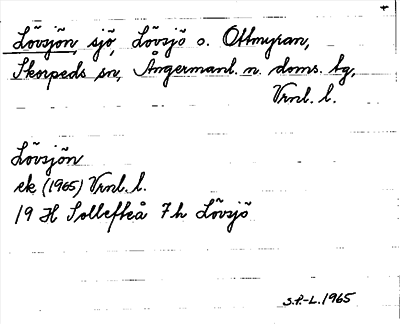 Lövsjön, sjö, Lövsjö o. Ottmyran,
Skorpeds sn, Ångermanl. n. doms. tg,
Vrnl. l.
Lövsjön
ek (1965) Vrnl. l.
19 H Sollefteå 7 h Lövsjö
S.P.-L. 1965